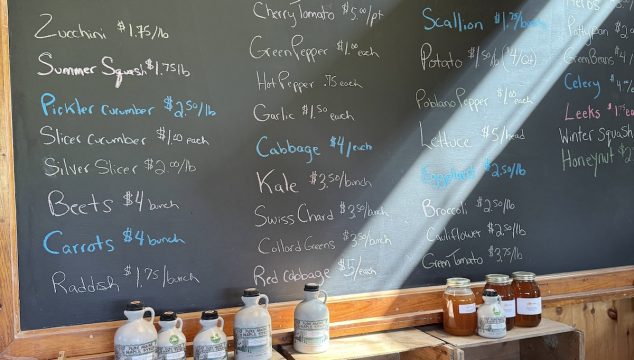 Zucchini $1.75/lb
Summer Squash $1.75lb
Pickler cucumber $2.50/lb
Slicer cucumber $1.00 each
Silver Slicer $2.00/lb
Beets $4 bunch
Carrots $4 bunch
Raddish $1.75/bunch
Cherry Tomato $5.00/pt
Green Pepper $1.00 each
Hot Pepper .75 each
Garlic $1.50 each
Cabbage $4/each
Kale $3.50/bunch
Swiss Chard $3.50/bunch
Collard Greens $3.50/bunch
Red cabbage $5/each
Scallion $1.75/bunch
Potato $1.50/lb ($4/Qt)
Poblano Pepper $1.00 each
Lettuce $5/head
Eggplant $2.50/lb
Broccoli $2.50/lb
Cauliflower $2.50/lb
Green Tomato $3.75/lb
Herbs $
Pattypan $2.
Green Beans $4
Celery $4.
Leeks $1.75 ea
Winter Squash
Honeynut $2